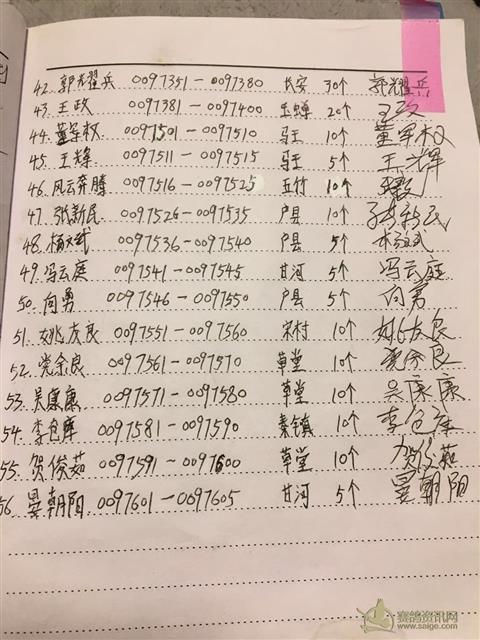 42. 郭光耀兵 0097351-0097380 长安 30个 郭耀兵
43. 王政 0097381-0097400 玉蝉 20个 王政
44. 董军权 0097501-0097510 马王 10个 董军权
45. 王辉 0097511-0097515 马王 5个 王辉
46. 风云奔腾 0097516-0097525 五竹 10个
47. 张新民 0097526-0097535 户县 10个 张新民
48. 杨文武 0097536-0097540 户县 5个 杨文武
49. 冯云庭 0097541-0097545 甘河 5个 冯云庭
50. 向勇 0097546-0097550 户县 5个 向勇
51. 姚友良 0097551-0097560 宋村 10个 姚友良
52. 党余良 0097561-0097570 草堂 10个 党余良
53. 吴康康 0097571-0097580 草堂 10个 吴康康
54. 李仓库 0097581-0097590 秦镇 10个 李仓库
55. 贺俊茹 0097591-0097600 草堂 10个 贺俊茹
56. 晏朝阳 0097601-0097605 甘河 5个 晏朝阳
赛鸽资讯网
www.saige.com